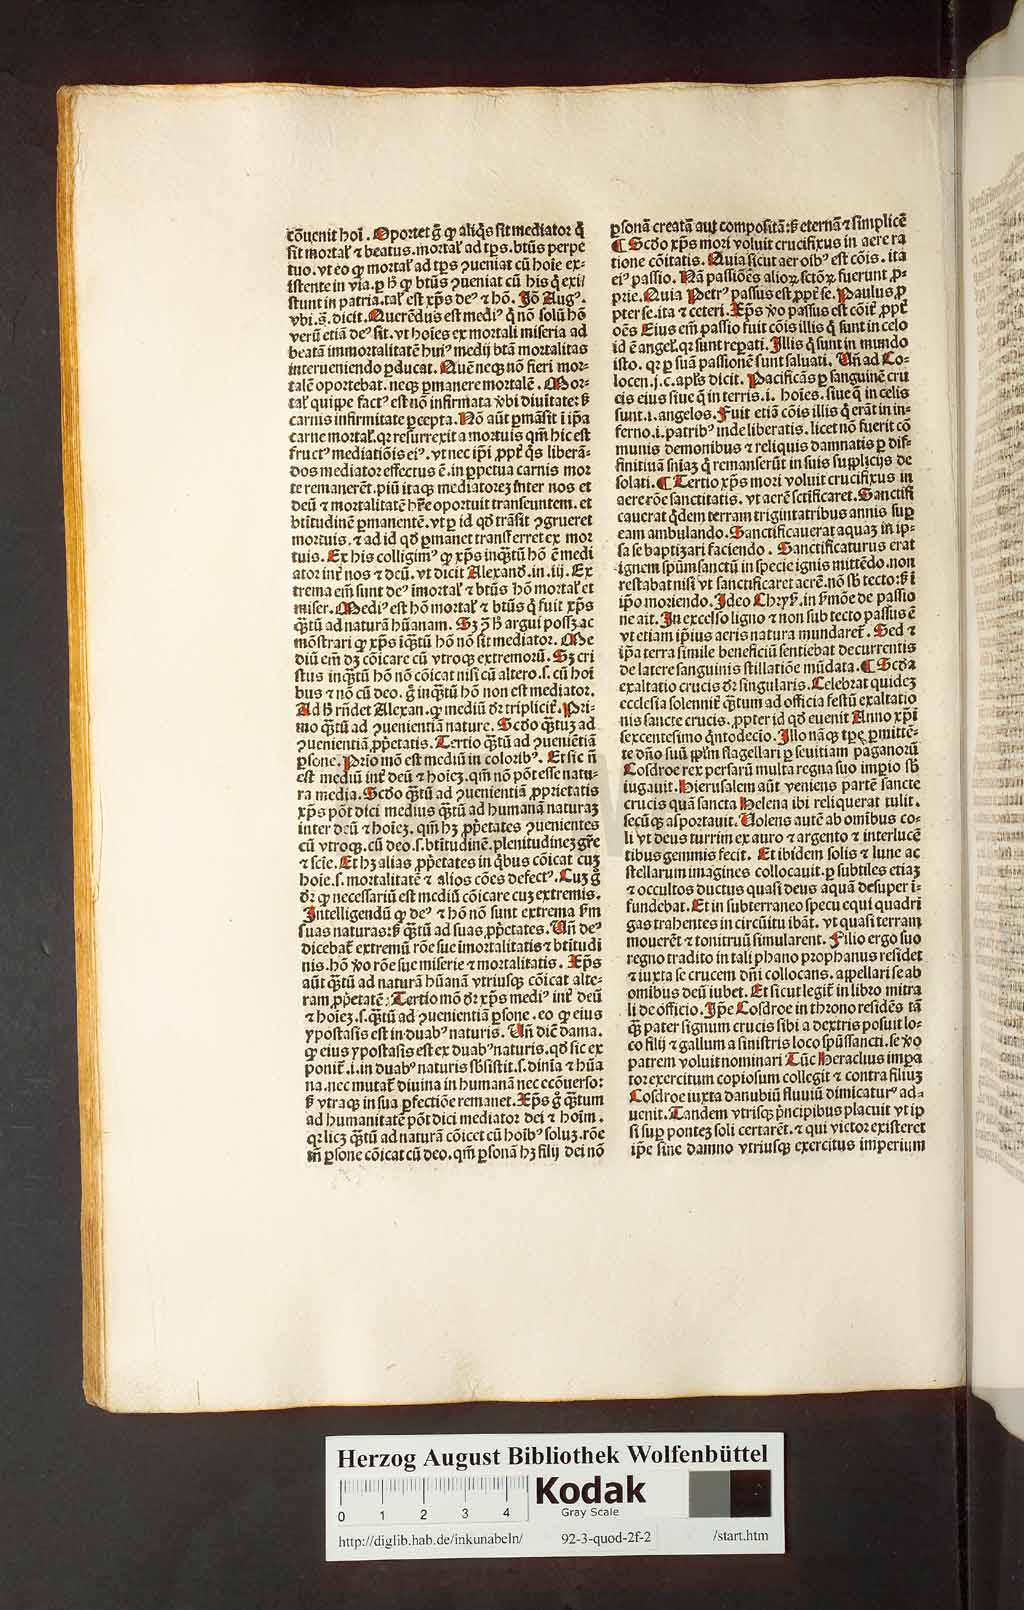 cōuenit hoī. Oportet g̃ ꝙ aliq̇s sit mediator q̇
sit mortal' ⁊ beatus. mortal' ad tp̄s. btūs perpe
tuo. vt eo ꝙ mortal' ad tp̄s ꝯueniat cū hoīe ex-
istente in via. ꝑ h̄ ꝙ btūs ꝯueniat cū his q̇ exi
stunt in patria. tal' est xp̄s deꝰ ⁊ hō. Iō Augꝰ.
vbi .s. dicit. Querēdus est mediꝰ q̇ nō solū hō
verū etiā deꝰ sit. vt hoīes ex mortali miseria ad
beatā immortalitatē huiꝰ medij btā mortalitas
interueniendo ꝑducat. Quē neqꝫ nō fieri mor-
talē oportebat. neqꝫ ꝑmanere mortalē. Mor-
tal' quippe factꝰ est nō infirmata v̓bi diuītate: ß
carnis infirmitate ꝑcepta. Nō aūt ꝑmāsit ī ip̄a
carne mortal'. qꝛ resurrexit a mortuis qm̄ hic est
fructꝰ mediatiōis eiꝰ. vt nec ip̄i ꝓpt̄ q̇s liberā-
dos mediator effectus ē. in ꝑpetua carnis mor
te remanerēt. piū itaqꝫ mediatoreꝫ īnter nos et
deū ⁊ mortalitatē hr̄e oportuit transeuntem. et
btitudinē ꝑmanentē. vt ꝑ id qd̓ trāsit ꝯgrueret
mortuis. ⁊ ad id qd̓ ꝑmanet transferret ex mor
tuis. Ex his colligimꝰ ꝙ xp̄s inq̄tū hō ē medi
ator int̄ nos ⁊ deū. vt dicit Alexand̓. in .iij. Ex
trema em̄ sunt deꝰ īmortal' ⁊ btūs hō mortal' et
miser. Mediꝰ est hō mortal' ⁊ btūs q̇ fuit xp̄s
q̄tū ad naturā hūanam. Sꝫ ꝯ̄ h̄ argui possꝫ ac
mōstrari ꝙ xp̄s iq̄tū hō nō sit mediator. Me
diū em̄ dꝫ cōicare cū vtroqꝫ extremorū. Sꝫ cri
stus inq̄tū hō nō cōicat nisi cū altero .s. cū hoī
bus ⁊ nō cū deo. g̊ inq̄tū hō non est mediator.
Ad h̄ rn̄det Alexan. ꝙ mediū d̓r triplicit̄. Pri-
mo q̄tū ad ꝯuenientiā nature. Scd̓o q̄tuꝫ ad
ꝯuenientiā ꝓp̄etatis. Tertio q̄tū ad ꝯueniētiā
ꝑsone. Prīo mō est mediū in coloribꝰ. Et sic n̄
est mediū int̄ deū ⁊ hoīeꝫ. qm̄ nō pōt esse natu-
ra media. Scd̓o q̄tū ad ꝯuenientiā ꝓprietatis
xp̄s pōt dici medius q̄tū ad humanā naturaꝫ
inter deū ⁊ hoīeꝫ. qm̄ hꝫ ꝓp̄etates ꝯuenientes
cū vtroqꝫ. cū deo .s. btitudinē. plenitudineꝫ gr̄e
⁊ scīe. Et hꝫ alias ꝓp̄etates in q̇bus cōicat cuꝫ
hoīe .s. mortalitatē ⁊ alios cōes defectꝰ. Cuꝫ g̊
d̓r ꝙ necessariū est mediū cōicare cuꝫ extremis.
Intelligendū ꝙ deꝰ ⁊ hō nō sunt extrema ßm
suas naturas: ß q̄tū ad suas ꝓp̄etates. Uñ deꝰ
dicebat̄ extremū rōe sue īmortalitatis ⁊ btitudi
nis. hō v̓o rōe sue miserie ⁊ mortalitatis. Xp̄s
aūt q̄tū ad naturā hūanā vtriusqꝫ cōicat alte-
ram ꝓp̄etatē. Tertio mō d̓r xp̄s mediꝰ int̄ deū
⁊ hoīeꝫ .s. q̄tū ad ꝯuenientiā ꝑsone. eo ꝙ eius
ypostasis est in duabꝰ naturis. Uñ diē dama.
ꝙ eius ypostasis est ex duabꝰ naturis. qd̓ sic ex
ponit̄ .i. in duabꝰ naturis sb̄sistit .s. diuīa ⁊ hūa
na. nec mutat̄ diuina in humanā nec ecōuerso:
ß vtraqꝫ in sua ꝑfectiōe remanet. Xp̄s g̊ q̄tum
ad humanitatē pōt dici mediator dei ⁊ hoīm.
qꝛ licꝫ q̄tū ad naturā cōicet cū hoībꝰ soluꝫ. rōe
tn̄ ꝑsone cōicat cū deo. qm̄ ꝑsonā hꝫ filij dei nō
ꝑsonā creatā aut compositā: ß eternā ⁊ simplicē
¶ Scd̓o xp̄s mori voluit crucifixus in aere ra
tione cōitatis. Quia sicut aer oībꝰ est cōis. ita
eiꝰ passio. Nā passiōes alioꝝ sctōꝝ fuerunt ꝓ-
prie. Quia Petrꝰ passus est ꝓpt̄ se. Paulus ꝓ
pter se. ita ⁊ ceteri. Xp̄s v̓o passus est cōit̄ ꝓpt̄
oēs Eius em̄ passio fuit cōis illis q̇ sunt in celo
id ē angel'. qꝛ sunt reꝑati. Illis q̇ sunt in mundo
isto. qꝛ ꝑ suā passionē sunt saluati. Uñ ad Co-
locen. j. c. apl̄s dicit. Pacificās ꝑ sanguinē cru
cis eius siue q̇ in terris .i. hoīes. siue q̇ in celis
sunt .i. angelos. Fuit etiā cōis illis q̇ erāt in in-
ferno .i. patribꝰ inde liberatis. licet nō fuerit cō
munis demonibus ⁊ reliquis damnatis ꝑ dif-
finitiuā sn̄iaꝫ q̇ remanserūt in suis supplicijs de
solati. ¶ Tertio xp̄s mori voluit crucifixus in
aere rōe sanctitatis. vt aerē sctificaret. Sanctifi
cauerat q̇dem terram triginta tribus annis suꝑ
eam ambulando. Sanctificauerat aquaꝫ in ip-
sa se baptizari faciendo. Sanctificaturus erat
ignem spūm sanctū in specie ignis mittēdo. non
restabat nisi vt sanctificaret aerē. nō sb̄ tecto: ß ī
ip̄o moriendo. Ideo Chryß. in ßmōe de passio
ne ait. In excelso ligno ⁊ non sub tecto passus ē
vt etiam ip̄ius aeris natura mundaret̄. Sed ⁊
ip̄a terra simile beneficiū sentiebat decurrentis
de latere sanguinis stillatiōe mūdata. ¶ Scd̓a
exaltatio crucis d̓r singularis. Celebrat quideꝫ
ecclesia solennit̄ q̄tum ad officia festū exaltatio
nis sancte crucis. ꝓpter id qd̓ euenit Anno xp̄i
sexcentesimo q̇ntodecīo. Illo nāqꝫ tp̄e ꝑmittē-
te dn̄o suū ppl̄m flagellari ꝑ seuitiam paganorū
Cosdroe rex persarū multa regna suo imꝑio sb̄
iugauit. Hierusalem aūt veniens partē sancte
crucis quā sancta Helena ibi reliquerat tulit.
secūqꝫ asportauit. Uolens autē ab omibus co-
li vt deus turrim ex auro ⁊ argento ⁊ interlucē
tibus gemmis fecit. Et ibidem solis ⁊ lune ac
stellarum imagines collocauit. ꝑ subtiles etiaꝫ
⁊ occultos ductus quasi deus aquā desuper ī-
fundebat. Et in subterraneo specu equi quadri
gas trahentes in circūitu ibāt. vt quasi terram
mouerēt ⁊ tonitruū simularent. Filio ergo suo
regno tradito in tali phano prophanus residet
⁊ iuxta se crucem dn̄i collocans. appellari se ab
omibus deū iubet. Et sicut legit̄ in libro mitra
li de officio. Ip̄e Cosdroe in throno residēs tā
q̄ pater signum crucis sibi a dextris posuit lo-
co filij ⁊ gallum a sinistris loco spūssancti. se v̓o
patrem voluit nominari Tūc Heraclius impa
tor exercitum copiosum collegit ⁊ contra filiuꝫ
Cosdroe iuxta danubiū fluuiū dimicaturꝰ ad-
uenit. Tandem vtrisqꝫ pn̄cipibus placuit vt ip
si suꝑ ponteꝫ soli certarēt. ⁊ qui victor existeret
ip̄e sine damno vtriusqꝫ exercitus imperium
Herzog August Bibliothek Wolfenbüttel
0 1 2 3 4
Kodak
Gray Scale
http://diglib.hab.de/inkunabeln/ 92-3-quod-2f-2 /start.htm